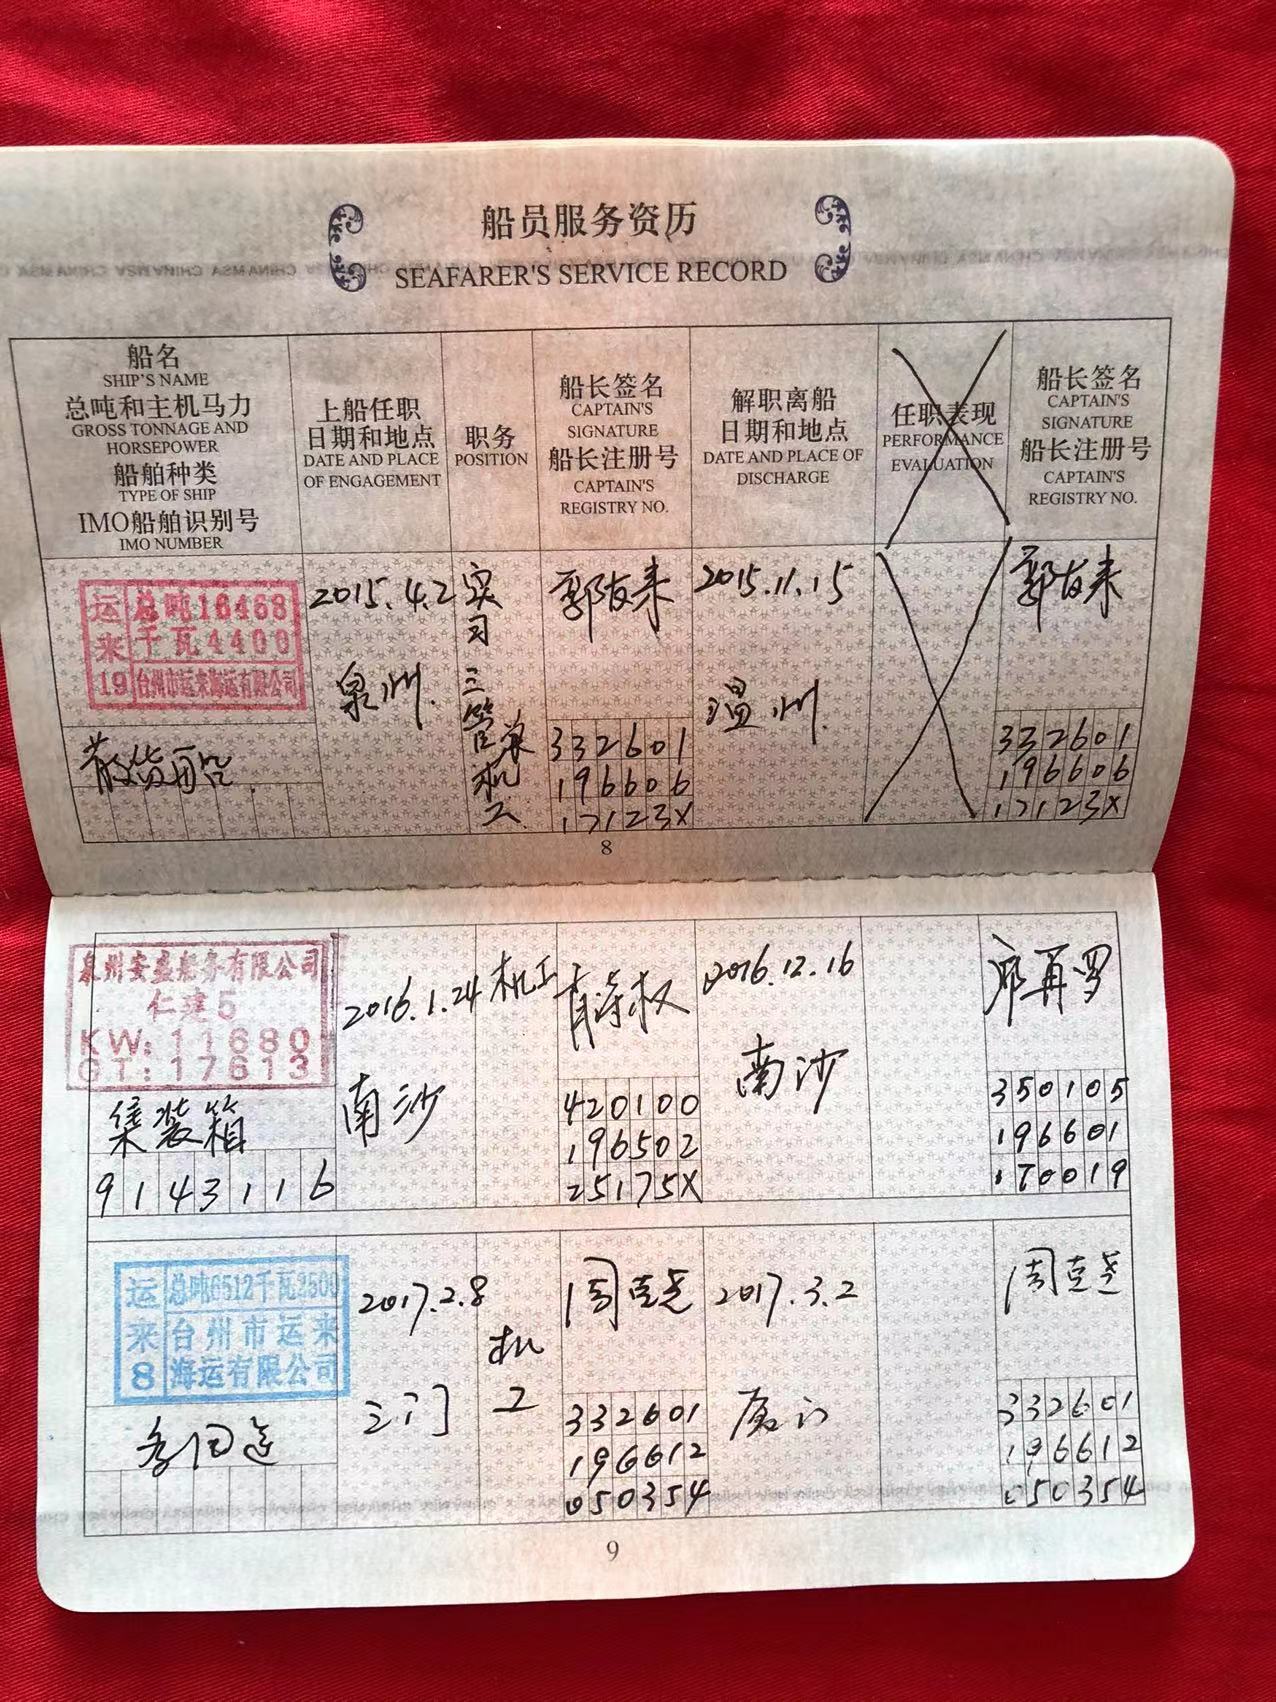 船员服务资历
SEAFARER'S SERVICE RECORD
船名
SHIP'S NAME
总吨和主机马力
GROSS TONNAGE AND
HORSEPOWER
船舶种类
TYPE OF SHIP
IMO船舶识别号
IMO NUMBER
上船任职
日期和地点
DATE AND PLACE
OF ENGAGEMENT
职务
POSITION
船长签名
CAPTAIN'S
SIGNATURE
船长注册号
CAPTAIN'S
REGISTRY NO.
解职离船
日期和地点
DATE AND PLACE OF
DISCHARGE
任职表现
PERFORMANCE
EVALUATION
船长签名
CAPTAIN'S
SIGNATURE
船长注册号
CAPTAIN'S
REGISTRY NO.
运来19
总吨16468
千瓦4400
台州市运来海运有限公司
散货船
2015.4.2
泉州
实习三管
机工
郭友来
332601
196606
17123X
2015.11.15
温州
郭友来
332601
196606
17123X
8
泉州安盛船务有限公司
仁建5
KW:11680
GT:17613
集装箱
9143116
2016.1.24
南沙
机工
420100
196502
25175X
2016.12.16
南沙
350105
196601
170019
运来8
总吨6512千瓦2500
台州市运来
海运有限公司
多用途
2017.2.8
三门
机工
周克尧
332601
196612
050354
2017.3.2
厦门
周克尧
332601
196612
050354
9